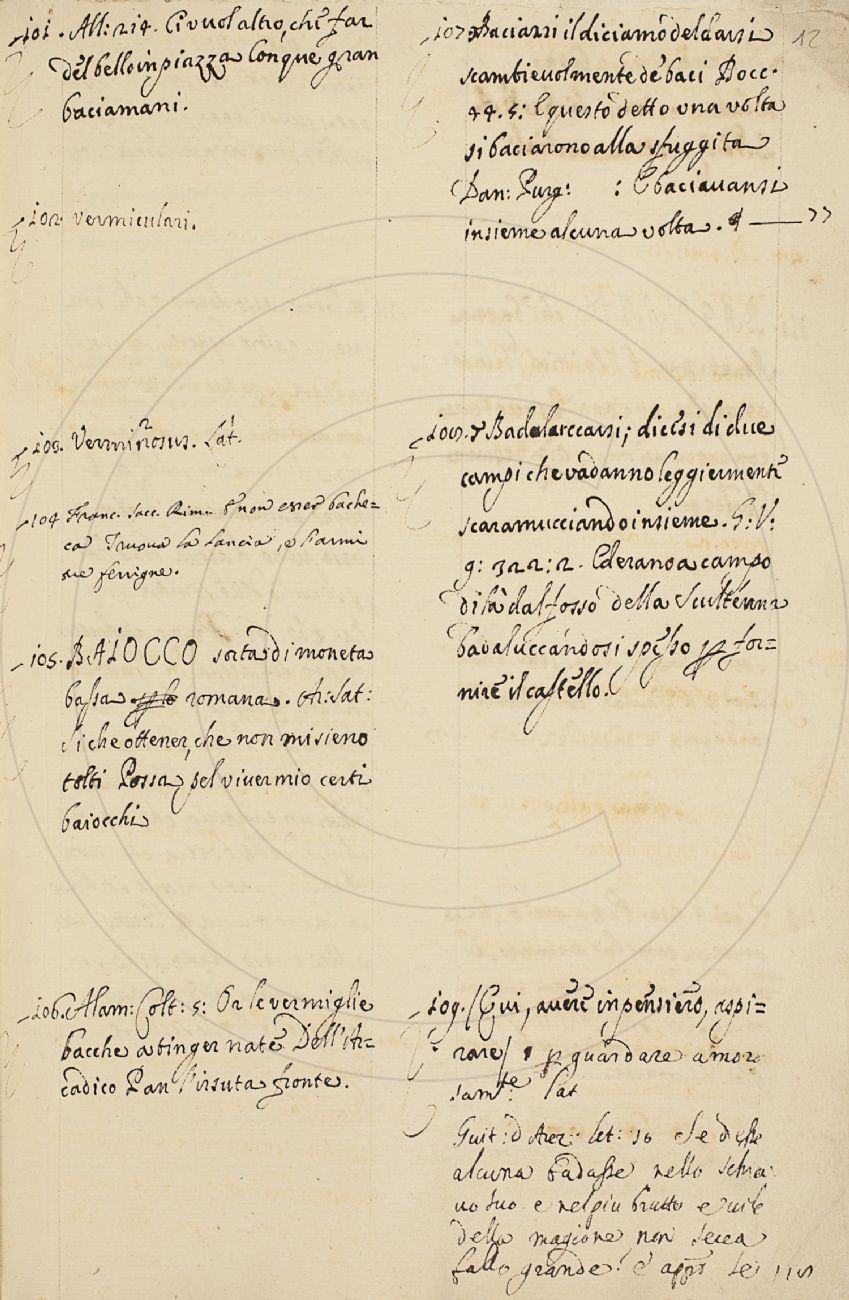 101. All: 214. Ci vuol altro, che far
del bello in piazza Con que gran
baciamani.
102. Vermiculari.
103. Verminosus. Lat.
104 Franc. Sacc. Rim. E non esser bache=
ca Truova la Lancia, e l'armi
tue ferrigne.
105. BAIOCCO sorta di moneta
bassa romana. Ar: Sat:
Si che ottener, che non mi sieno
tolti Possa pel viver mio certi
baiocchi
106. Alam: Colt: 5: Or le vermiglie
bacche a tinger nate Dell'Ar=
cadico Pan l'irsuta fronte.
12
107. Baciarsi il diciamo del darsi
scambievolmente de baci Bocc.
44. 5: E questo detto una volta
si baciarono alla sfuggita
Dan: Purg: : E baciavansi
insieme alcuna volta.
Badaluccarsi; dicesi di due
campi che vadanno leggiermente
scaramucciando insieme. G: V:
9: 322: 2. Ed erano a campo
di là dal fosso della Scultenna
badaluccandosi spesso p for=
nire il castello.
109. (Cui, avere in pensiero, aspi=
rare) p guardare amoro
samte. Lat
Guit: d Arez: let: 10 Se
alcuna badasse nello schia
vo suo e nel piu brutto e vile
della magione non secca
fallo grande! e